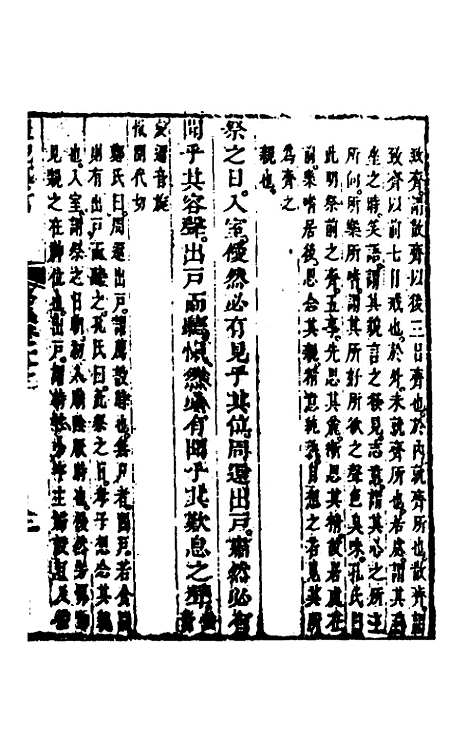 致齊謂散齊以後三日齊也於內就齊所也散齊謂
致齊以前七日戒也於外未就齊所也若處謂其居
坐之時笑語謂其親言之發見志意謂其心之所主
所向所樂所嗜謂其所好所欲之聲色臭味孔氏曰
此明祭前之齊五事先思其麤漸思其精故居處在
前樂嗜居後思念其親精意純熟目想之若見其所
為齊之
親也
祭之日入室僾然必有見乎其位周還出戶肅然必有
聞乎其容聲出戶而聽愾然必有聞乎其歎息之聲
還音旋
愾開代切
鄭氏曰周還出戶謂薦設時也無尸者闔戶若食間
則有出戶而聽之孔氏曰此祭之日孝子想念其親
也入室謂祭之日朝初入廟陰厭時也僾然
見親之在神位也出戶謂